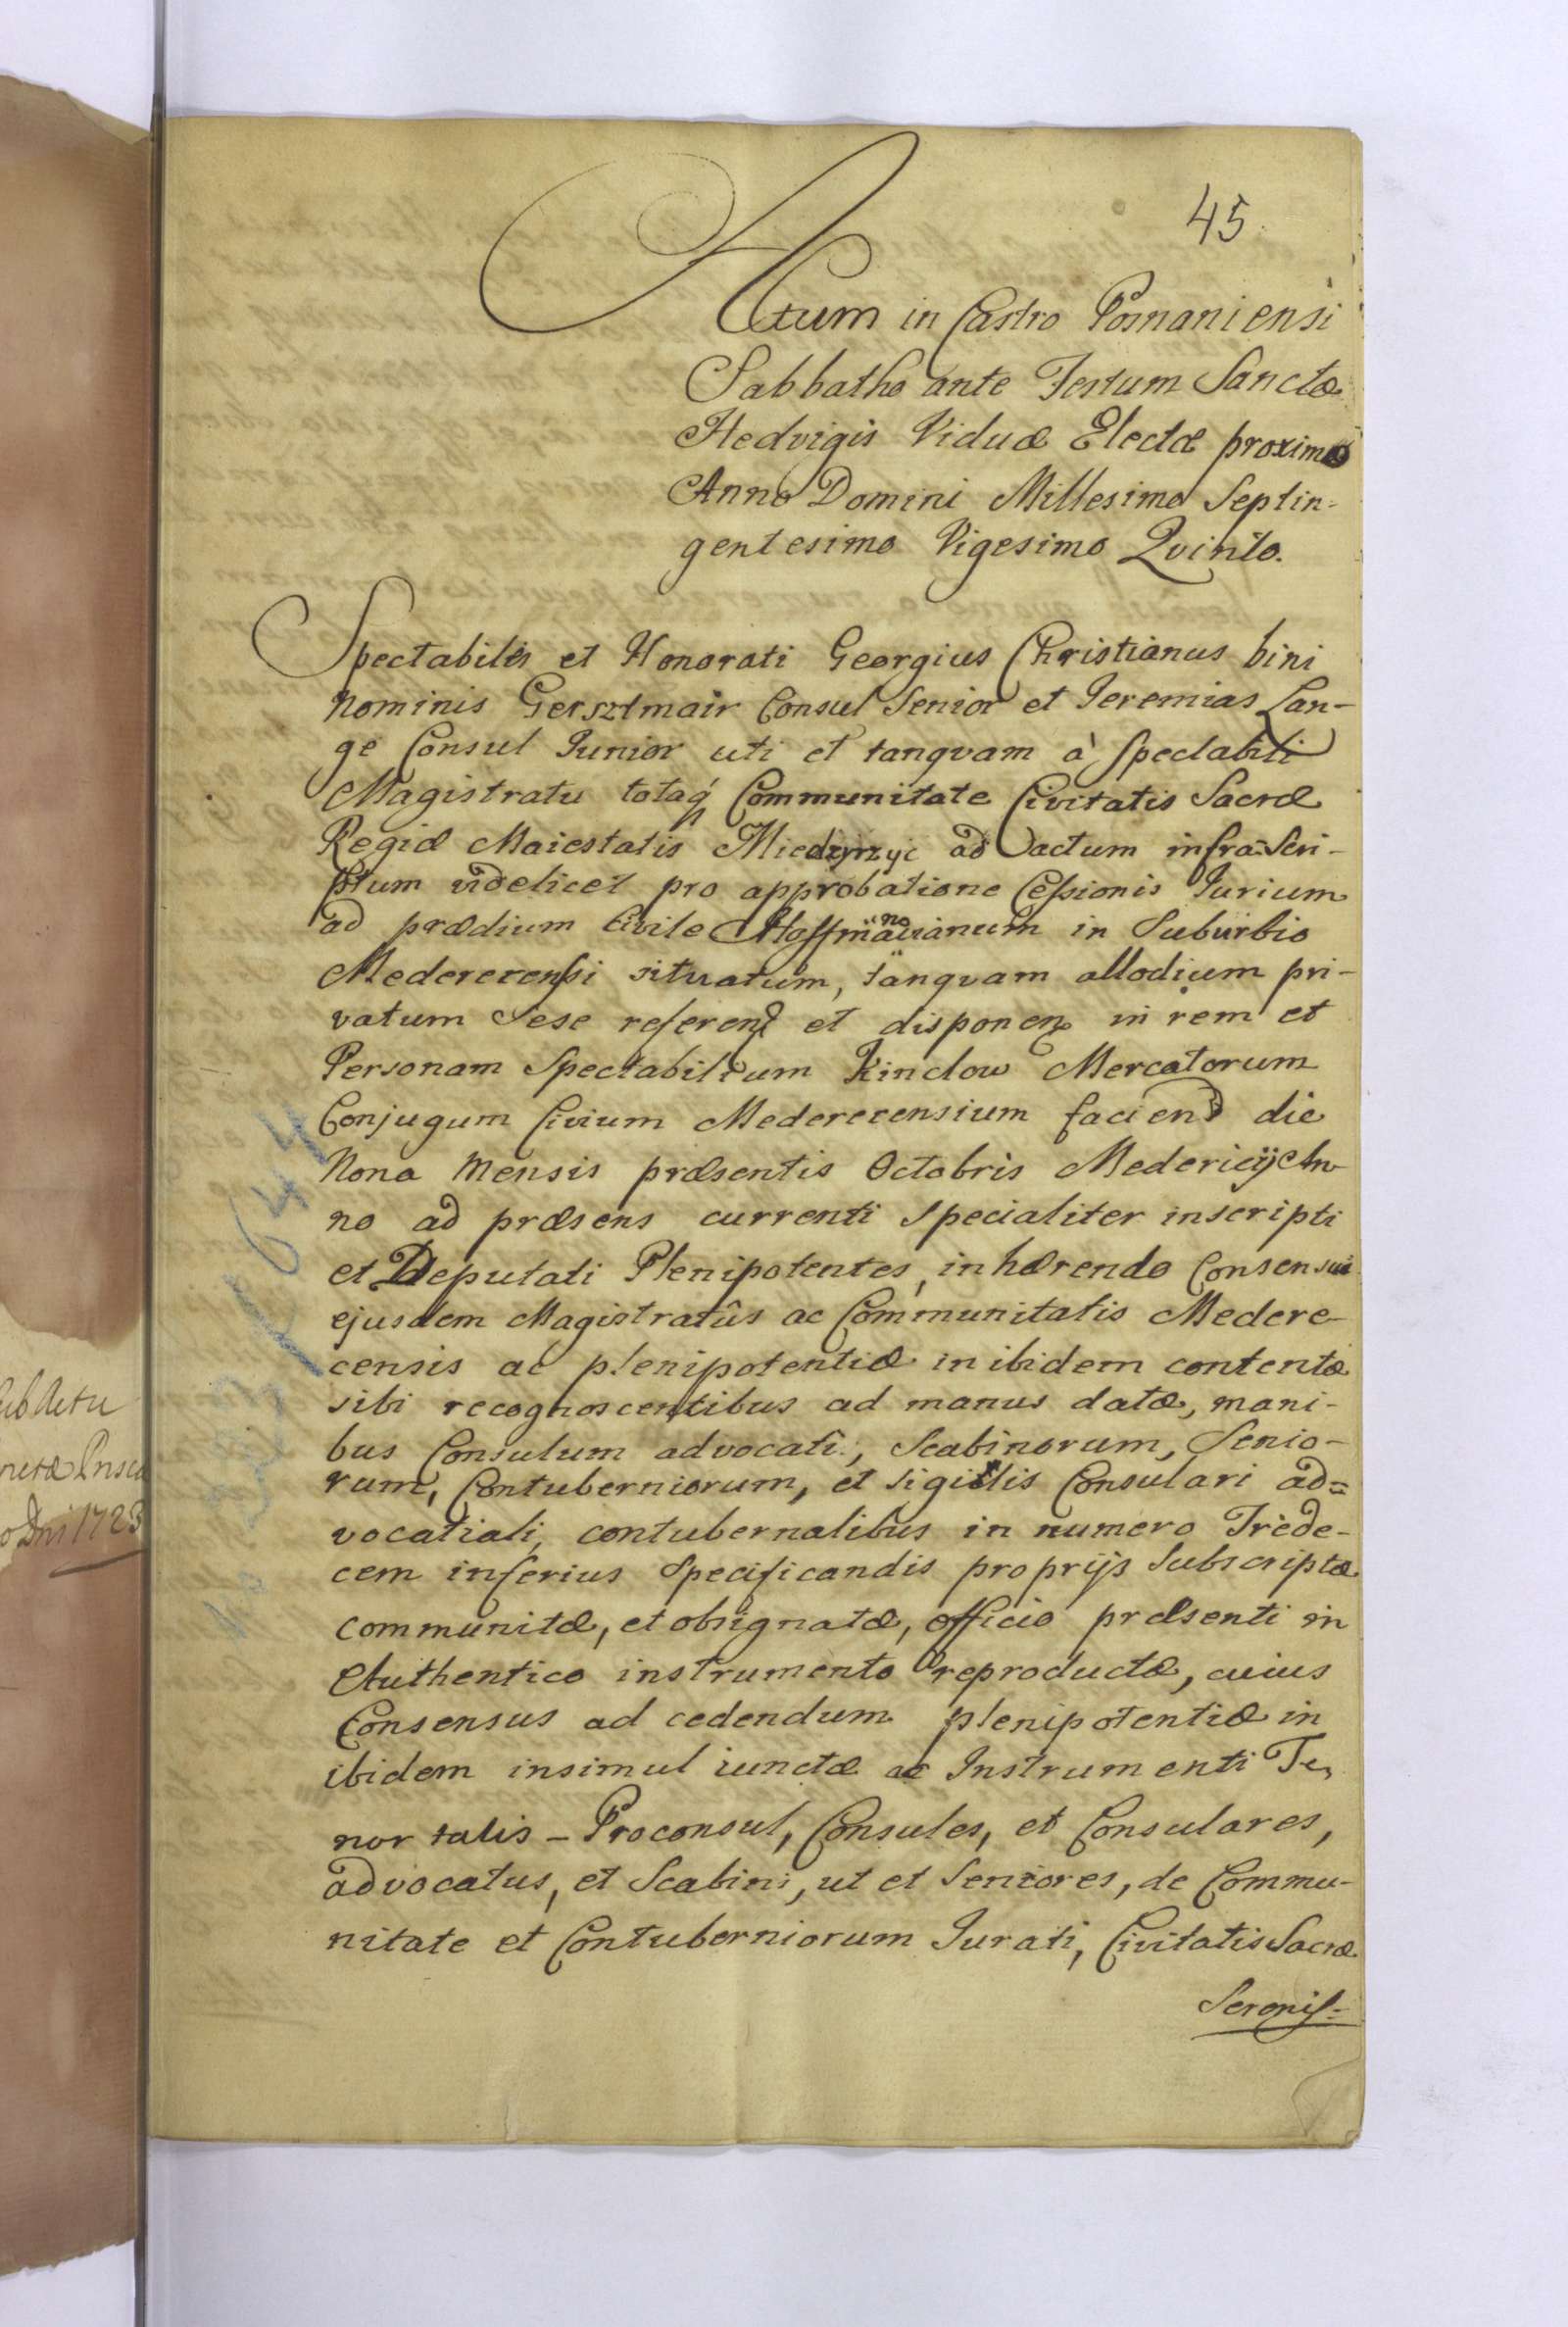 45
Actum in Castro Posnaniensi
Sabbatho ante Festum Sanctæ
Hedvigis Viduæ Electæ proximo
Anno Domini Millesimo Septin-
gentesimo Vigesimo Qvinto.
Spectabiles et Honorati Georgius Christianus bini
Nominis Gersztmair Consul Senior et Ieremias Lan-
ge Consul Iunior uti et tanqvam à Spectabili
Magistratu totaq́ Communitate Civitatis Sacræ
Regiæ Maiestatis Miedzyrzyc ad actum infra Scri-
ptum videlicet pro approbatione Cessionis Iurium
ad prædium Civile Hoffmãnianum in Suburbio
Medererensi situatum, tanqvam allodium pri-
vatum Sese referen et disponen in rem et
Personam Spectabilium Kinclow Mercatorum
Conjugum Civium Medererensium faciend die
Nona Mensis præsentis Octobris Medericij An-
no ad præsens currenti Specialiter inscripti
et Deputati Plenipotentes, inhærendo Consensui
ejusdem Magistratûs ac Communitatis Medere-
censis ac plenipotentiæ in ibidem contentæ
sibi recognoscentibus ad manus datæ, mani-
bus Consulum advocati, Scabinorum, Senio-
rum, Contuberniorum, et sigillis Consulari ad=
vocatiali, contubernalibus in numero Trede-
cem inferius Specificandis proprijs Subscriptæ
communitæ, et obsignatæ, officio præsenti in
Authentico instrumento reproductæ, cuius
Consensus ad cedendum plenipotentiæ in
ibidem insimul iunctæ ac Instrumenti Te,
nor talis - Proconsul, Consules, et Consulares,
advocatus, et Scabini, ut et Seniores, de Commu-
nitate et Contuberniorum Iurati, Civitatis Sacræ
Serenis=
o Dni 1723